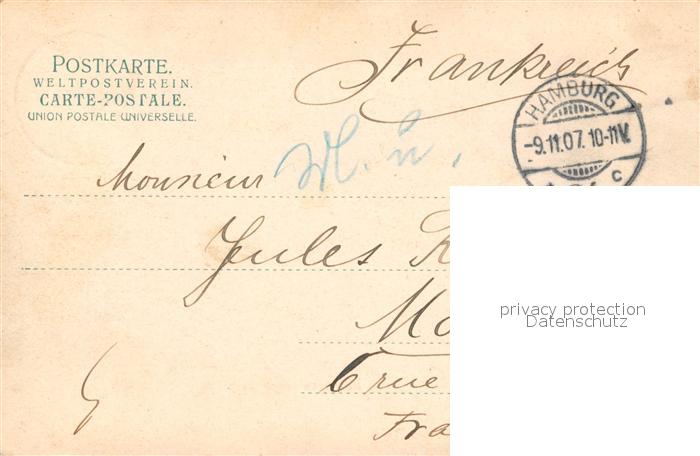 POSTKARTE.
WELTPOSTVEREIN.
CARTE-POSTALE.
UNION POSTALE UNIVERSELLE.
Frankreich
HAMBURG
-9.11.07. 10-11V.
c
Monsieur
Jules
6 rue
privacy protection
Datenschutz